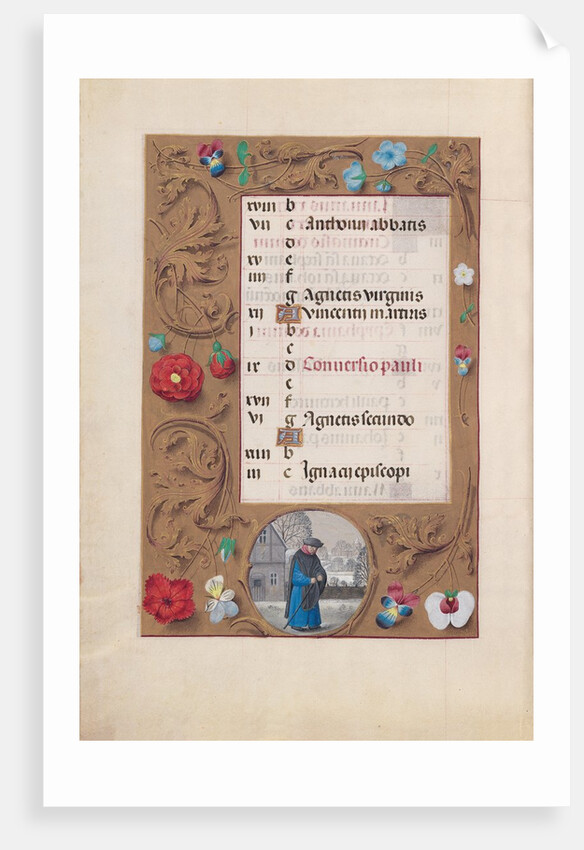 xviii b
vii c Anthonij abbatis
d
xv e
iiii f
g Agnetis virginis
xii A Vincentij martiris
i b
c
ix d Conversio pauli
e
xvii f
vi g Agnetis secundo
A
xiiii b
iii c Ignacij episcopi